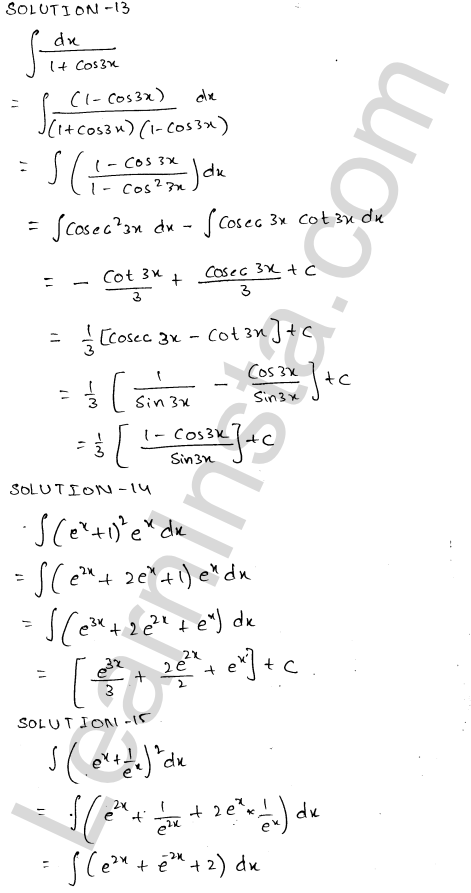 SOLUTION-13
∫ dx / (1 + cos3x)
= ∫ (1 - cos3x) / (1 + cos3x)(1 - cos3x) dx
= ∫ ( (1 - cos 3x) / (1 - cos² 3x) ) dx
= ∫ cosec² 3x dx - ∫ cosec 3x cot 3x dx
= - cot 3x / 3 + cosec 3x / 3 + c
= 1/3 [cosec 3x - cot 3x] + c
= 1/3 [ 1 / sin 3x - cos 3x / sin 3x ] + c
= 1/3 [ (1 - cos3x) / sin3x ] + c
SOLUTION-14
∫ (eˣ + 1)² eˣ dx
= ∫ (e²ˣ + 2eˣ + 1) eˣ dx
= ∫ (e³ˣ + 2e²ˣ + eˣ) dx
= [ e³ˣ / 3 + 2e²ˣ / 2 + eˣ ] + c
SOLUTION-15
∫ ( eˣ + 1/eˣ )² dx
= ∫ ( e²ˣ + 1/e²ˣ + 2eˣ × 1/eˣ ) dx
= ∫ (e²ˣ + e⁻²ˣ + 2) dx
LearnInsta.com